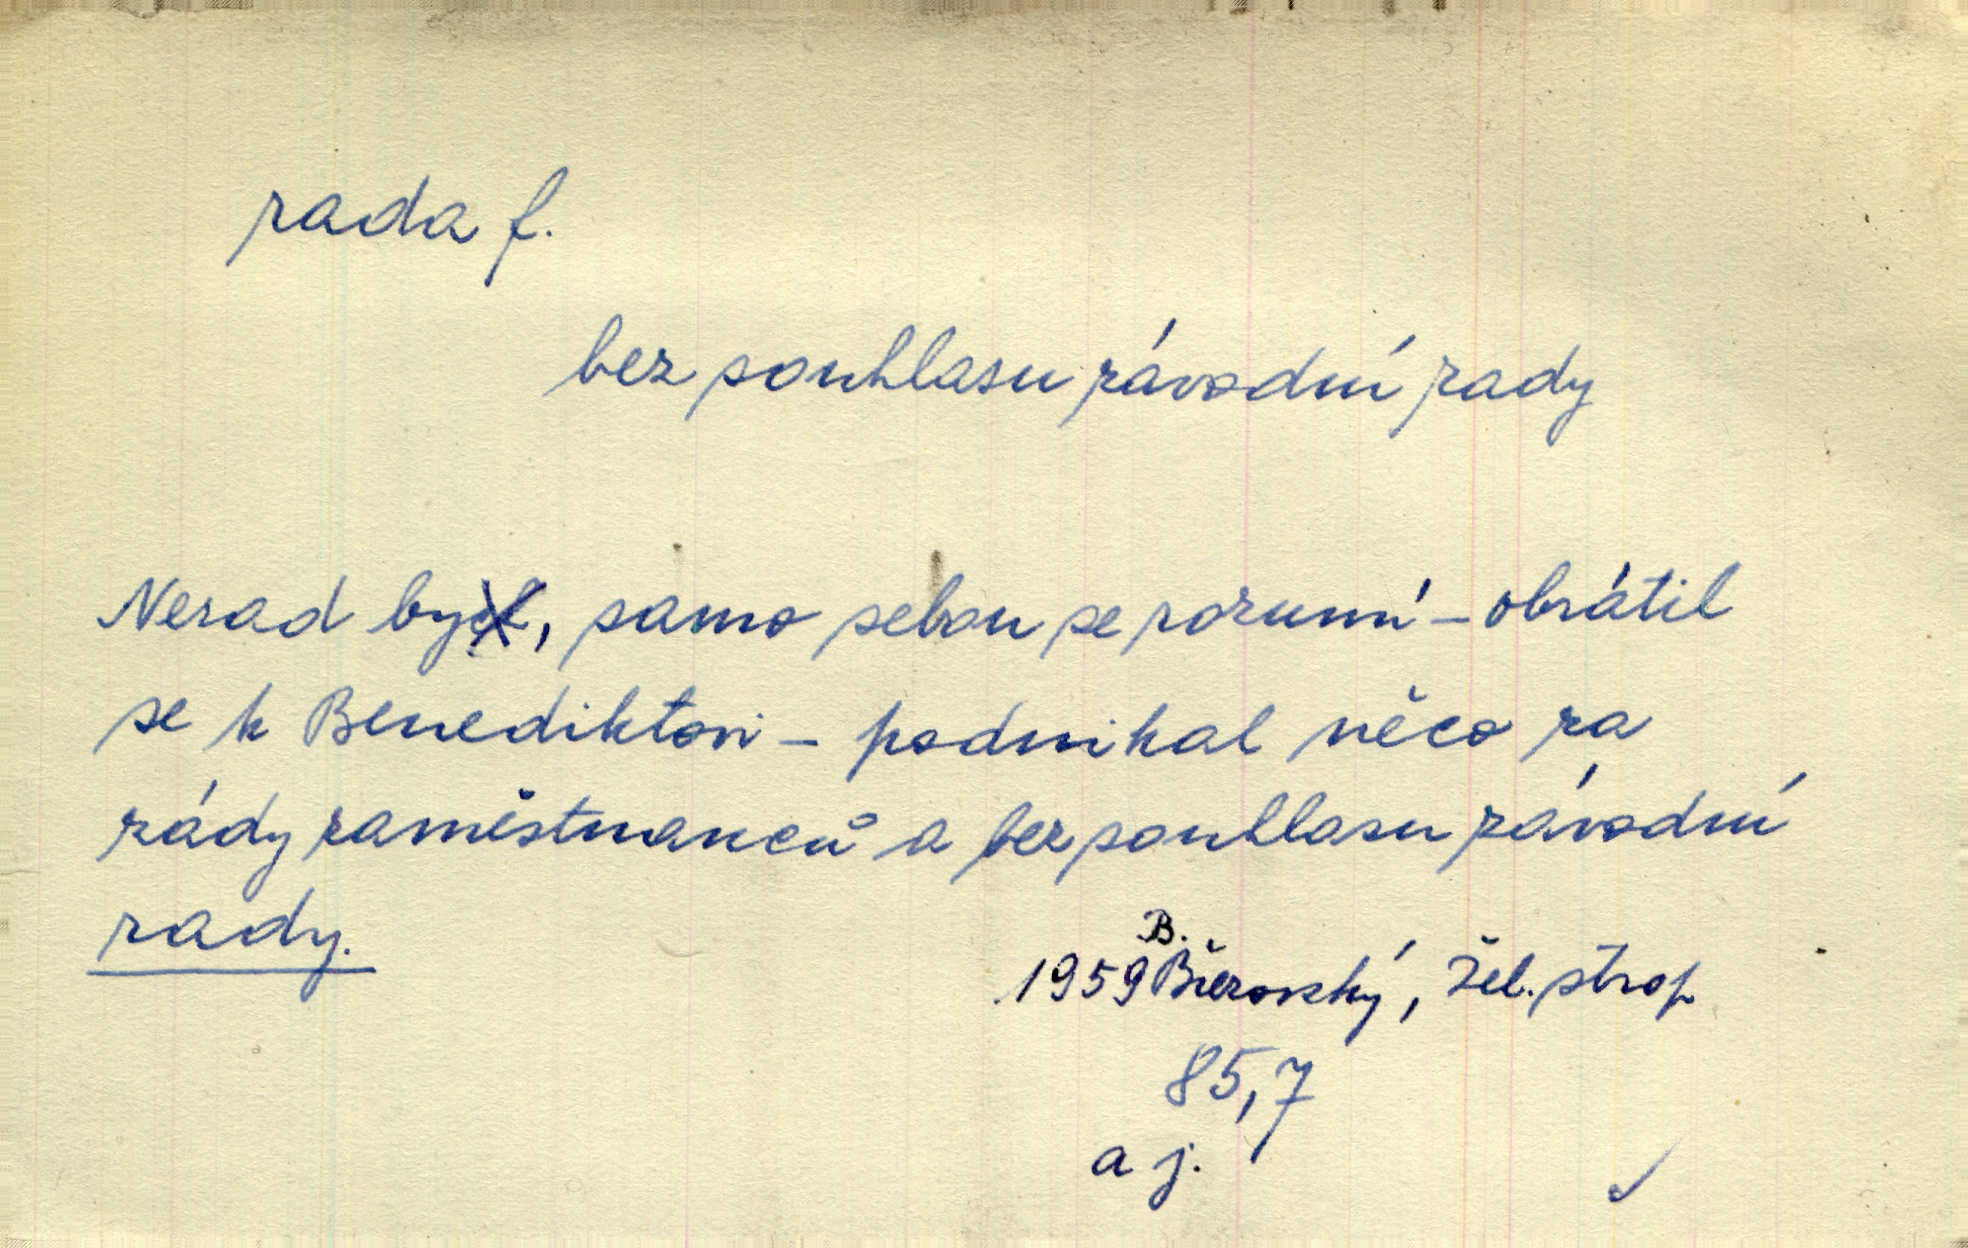 rada f.
bez souhlasu závodní rady
Nerad by, samo sebou se rozumí – obrátil
se k Benediktovi – podnikal něco za
zády zaměstnanců a bez souhlasu závodní
rady.
B.
1959 Březovský, Žel. strop
85,7
a j.